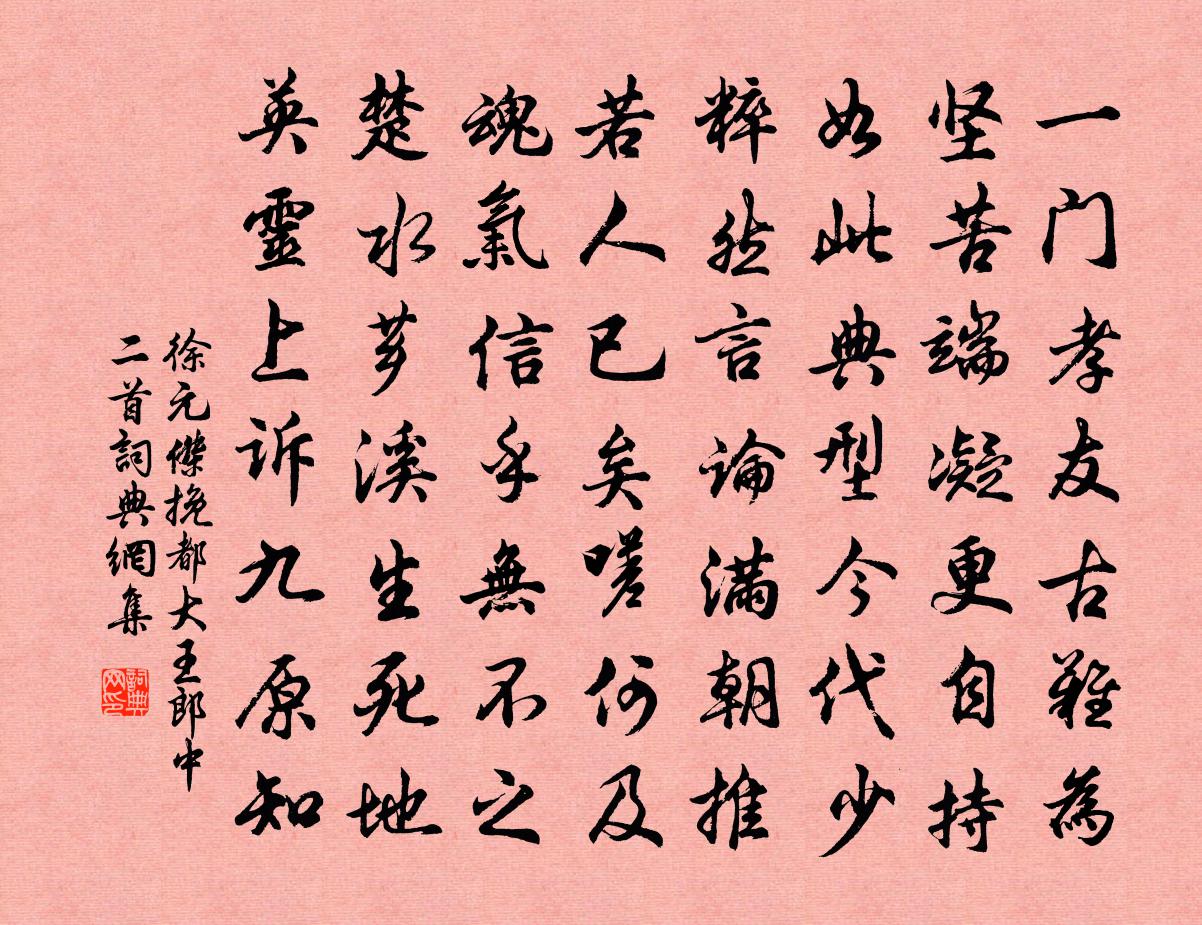 一门孝友古難為
坚苦端凝更自持
如此典型今代少
粹然言論滿朝推
若人已矣嗟何及
魂氣信乎無不之
楚水芗溪生死地
英靈上诉九原知
徐元傑挽都大王郎中
二首詞典網集
詞典网印